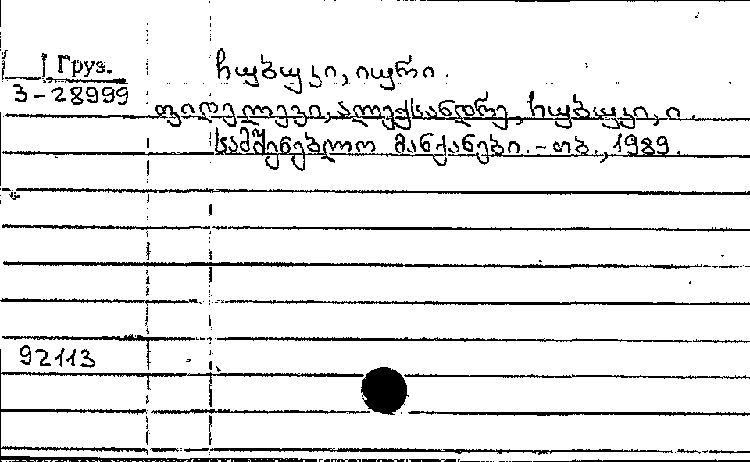 Груз.
ჩუბუკი, იური.
3-28999
ფიდელევი, ალექსანდრე, ჩუბუკი, ი.
სამშენებლო მანქანები.-თბ., 1989.
92113